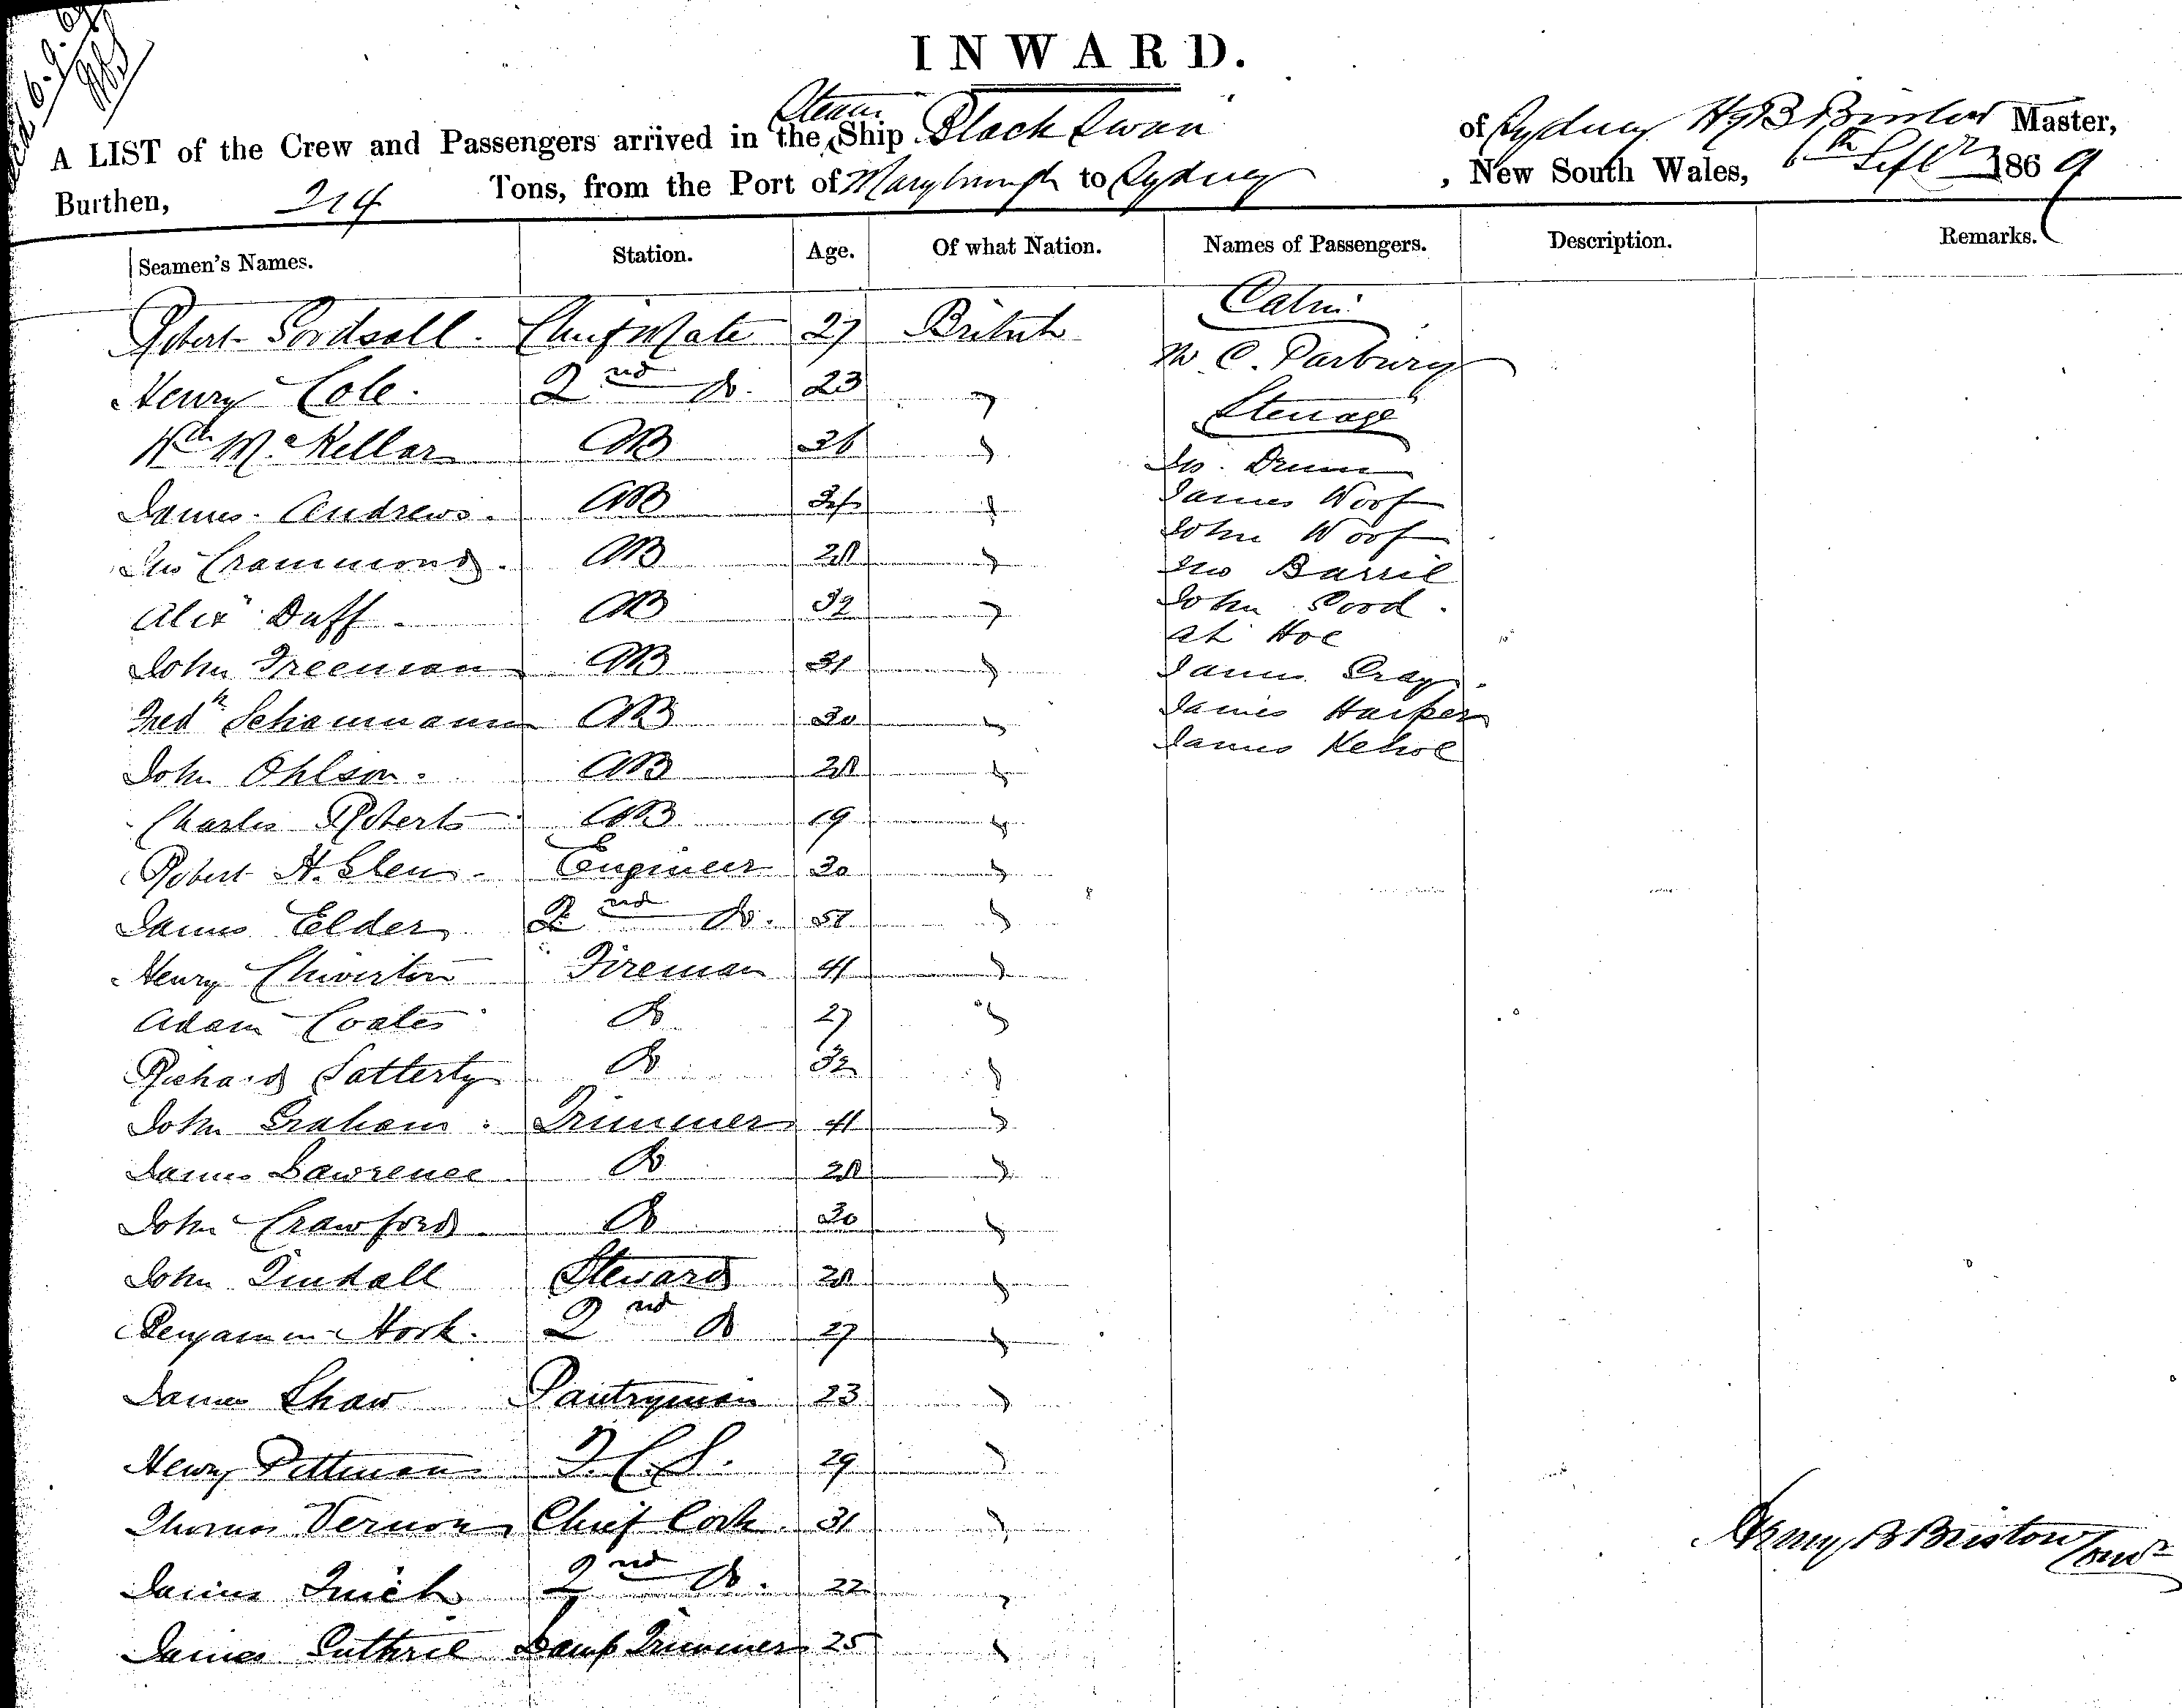 INWARD.
A LIST of the Crew and Passengers arrived in the Steam Ship Black Swan of Sydney Hy B Bristow Master,
Burthen, 214 Tons, from the Port of Maryborough to Sydney, New South Wales, 6th Septr 1869
Seamen's Names. Station. Age. Of what Nation. Names of Passengers. Description. Remarks.
Robert Chief Mate 27 British
Henry Cole. 2nd Do. 23 "
Wm McKellar AB 36 "
James Andrews. AB "
Jno Crammond. AB 28 "
Alexr Duff. AB 32 "
John Freeman AB 31 "
Fredk Schaumann AB 30 "
John Ohlson. AB 28 "
Charles Roberts AB 19 "
Robert H. Glen. Engineer 30 "
James Elder 2nd Do. "
Henry Chiverton Fireman 41 "
Adam Coates Do 27 "
Richard Satterty Do 32 "
John Graham. Trimmer 41 "
James Lawrence Do 28 "
John Crawford Do 30 "
John Tindall Steward 28 "
Benjamin Hook. 2nd Do 27 "
James Shaw Pantryman 23 "
Henry Pittman F.C.S. 29 "
Thomas Vernon Chief Cook. 31 "
James 2nd Do. 22 "
James Guthrie Lamp Trimmer 25 "
Cabin
Mr C. Parbury
Steerage
Jno. Drum
James Woof
John Woof
Jno Barril
John Good.
At Hoe
James Gray.
James Harper
James Kehoe
Henry B Bristow Comr